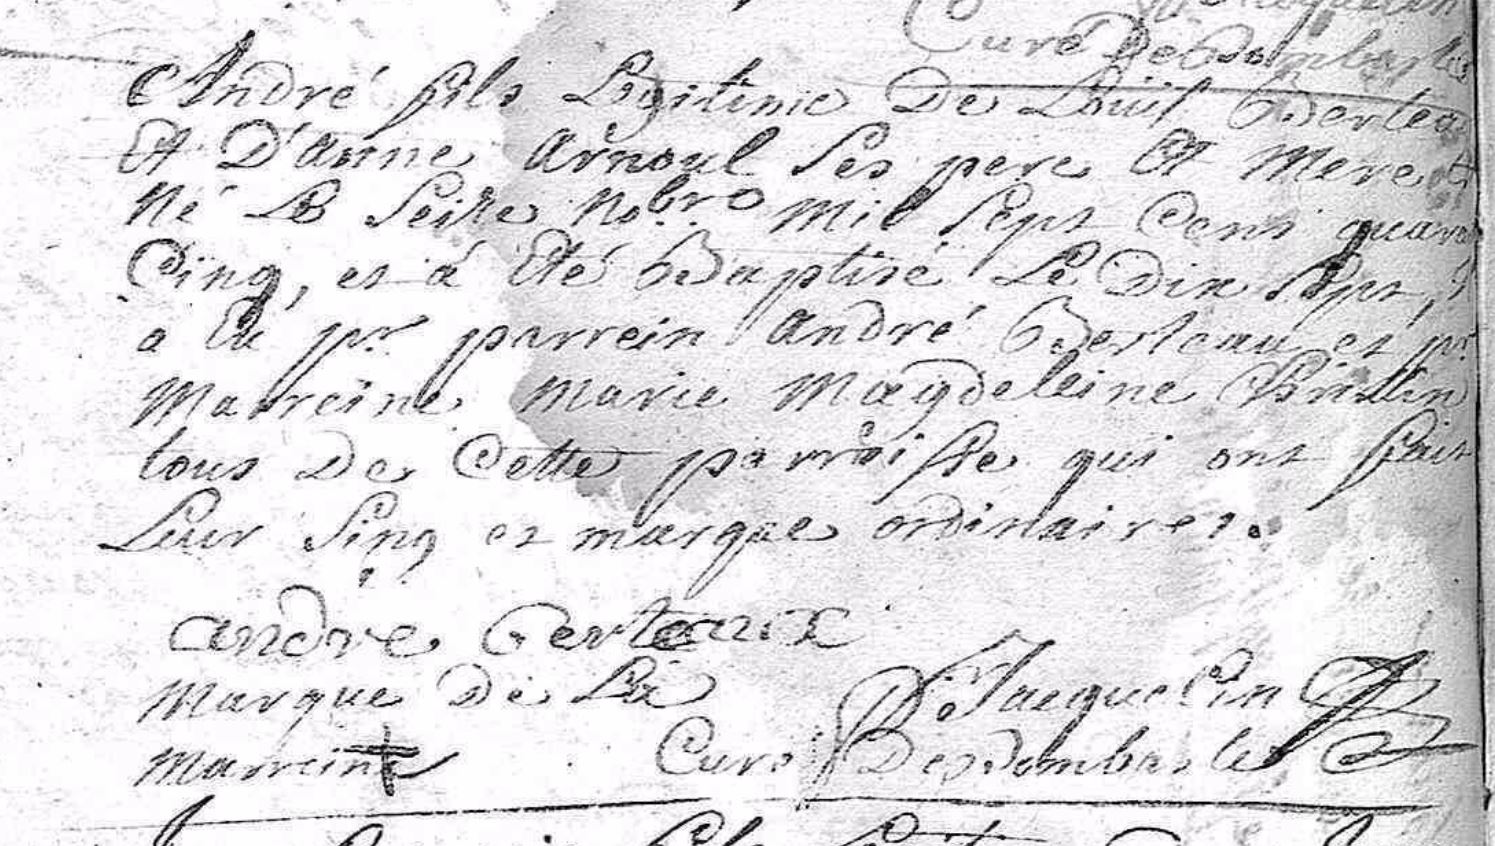 Curé De Dombasles
André fils Legitime De Louis Berteau
Et D'anne Arnoul Ses pere Et Mere Et
Né Le Seize No.bre Mil Sept Cent quaran
Cinq, et à Eté Baptisé Le Dix Sept, Il
a Eu pr. parrein André Berteau et pr.
Marreine Marie Magdeleine
tous De Cette parroisse qui ont fait
Leur Sing et marque ordinaires.
andre berteaux
Marque De La
Marreine
D. Jacquelin
Curé De Dombasles